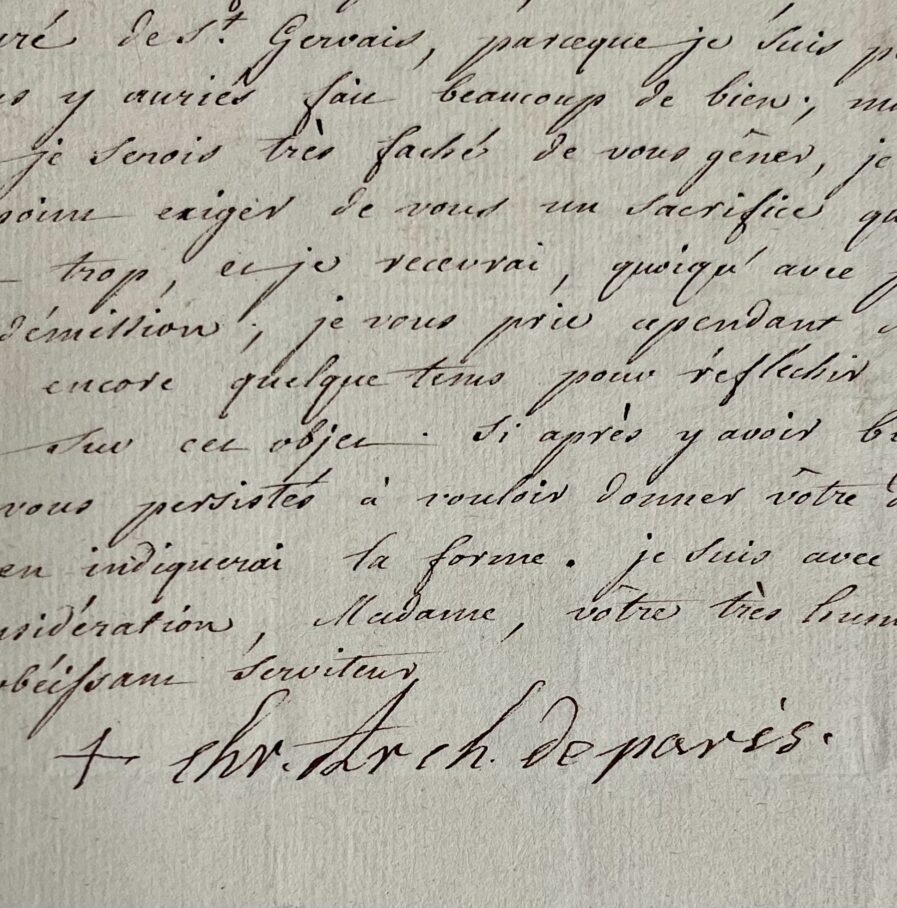 uré de St. Gervais, parceque je suis p
us y auriés fait beaucoup de bien; m
je serois très faché de vous gêner, je
point exiger de vous un sacrifice qu
trop, et je recevrai, quoiqu' avec
démission; je vous prie cependant
encore quelque tems pour réfléchir
sur cet objet. si après y avoir b
vous persistés à vouloir donner vôtre d
en indiquerai la forme. je suis avec
nsidération, Madame, vôtre très hum
obéissant serviteur
+ chr. Arch. de paris.